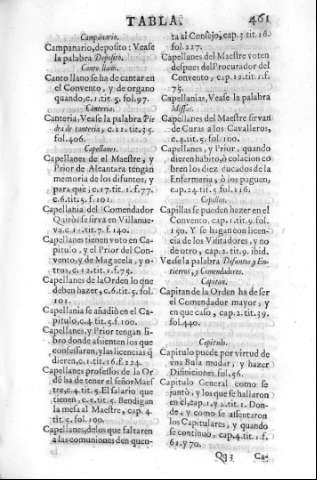 TABLA.
461
Campanario.
Campanario, deposito: Vease
la palabra Deposito.
Canto llano.
Canto llano se ha de cantar en
el Convento, y de organo
quando, c. 1. tit. 5. fol. 97.
Canteria.
Canteria, Vease la palabra Pie
dra de canteria, c. 11. tit. 35.
fol. 406.
Capellanes.
Capellanes de el Maestre, y
Prior de Alcantara tengan
memoria de los difuntos, y
para què, c. 17. tit. 1. f. 77.
c. 6. tit. 5. f. 101.
Capellania del Comendador
Quibòs se sirva en Villanue-
va. c. 11. tit. 7. f. 140.
Capellanes tienen voto en Ca-
pitulo, y el Prior del Con-
vento, y de Magacela, y o-
tros, c. 12. tit. 1. f. 75.
Capellanes de la Orden lo que
deben hazer, c. 6. tit. 5. fol.
101.
Capellania se añadiò en el Ca-
pitulo, c. 4. tit. 5. f. 100.
Capellanes, y Prior tengan li-
bro donde assienten los que
confessaren, y las licencias q̃
dieren, c. 1. tit. 16. f. 224.
Capellanes professos de la Or
dẽ ha de tener el señor Maes
tre, c. 4. tit. 5. El salario que
tienen, c. 5. tit. 5. Bendigan
la mesa al Maestre, cap. 4.
tit. 5. fol. 100.
Capellanes, de los que faltaren
a las comuniones den quen-
ta al Consejo, cap. 3. tit. 16.
fol. 227.
Capellanes del Maestre voten
despues del Procurador del
Convento, cap. 12. tit. 1. f.
75.
Capellanias, Vease la palabra
Missas.
Capellanes del Maestre sirvan
de Curas a los Cavalleros,
c. 3. tit. 5. fol. 100.
Capellanes, y Prior, quando
dieren habito, ò colacion co
bren los diez ducados de la
Enfermeria, ò los paguen,
cap. 24. tit. 5. fol. 116.
Capillas.
Capillas se pueden hazer en el
Convento, cap. 1. tit. 9. fol.
150. Y se hagan con licen-
cia de los Visitadores, y no
de otro, cap. 2. tit. 9. ibid.
Vease la palabra Difuntos y En-
tierros, y Comendadores.
Capitan.
Capitan de la Orden ha de ser
el Comendador mayor, y
en que caso, cap. 2. tit. 39.
fol. 440.
Capitulo.
Capitulo puede por virtud de
una Bula mudar, y hazer
Difiniciones fol. 56.
Capitulo General como se
juntò, y los que se hallaron
en el, cap. 1. y 2. tit. 1. Don-
de, y como se assentaron
los Capitulares, y quando
se continuò, cap. 4. tit. 1. f.
61. y 70.
Qq 3
Ca-